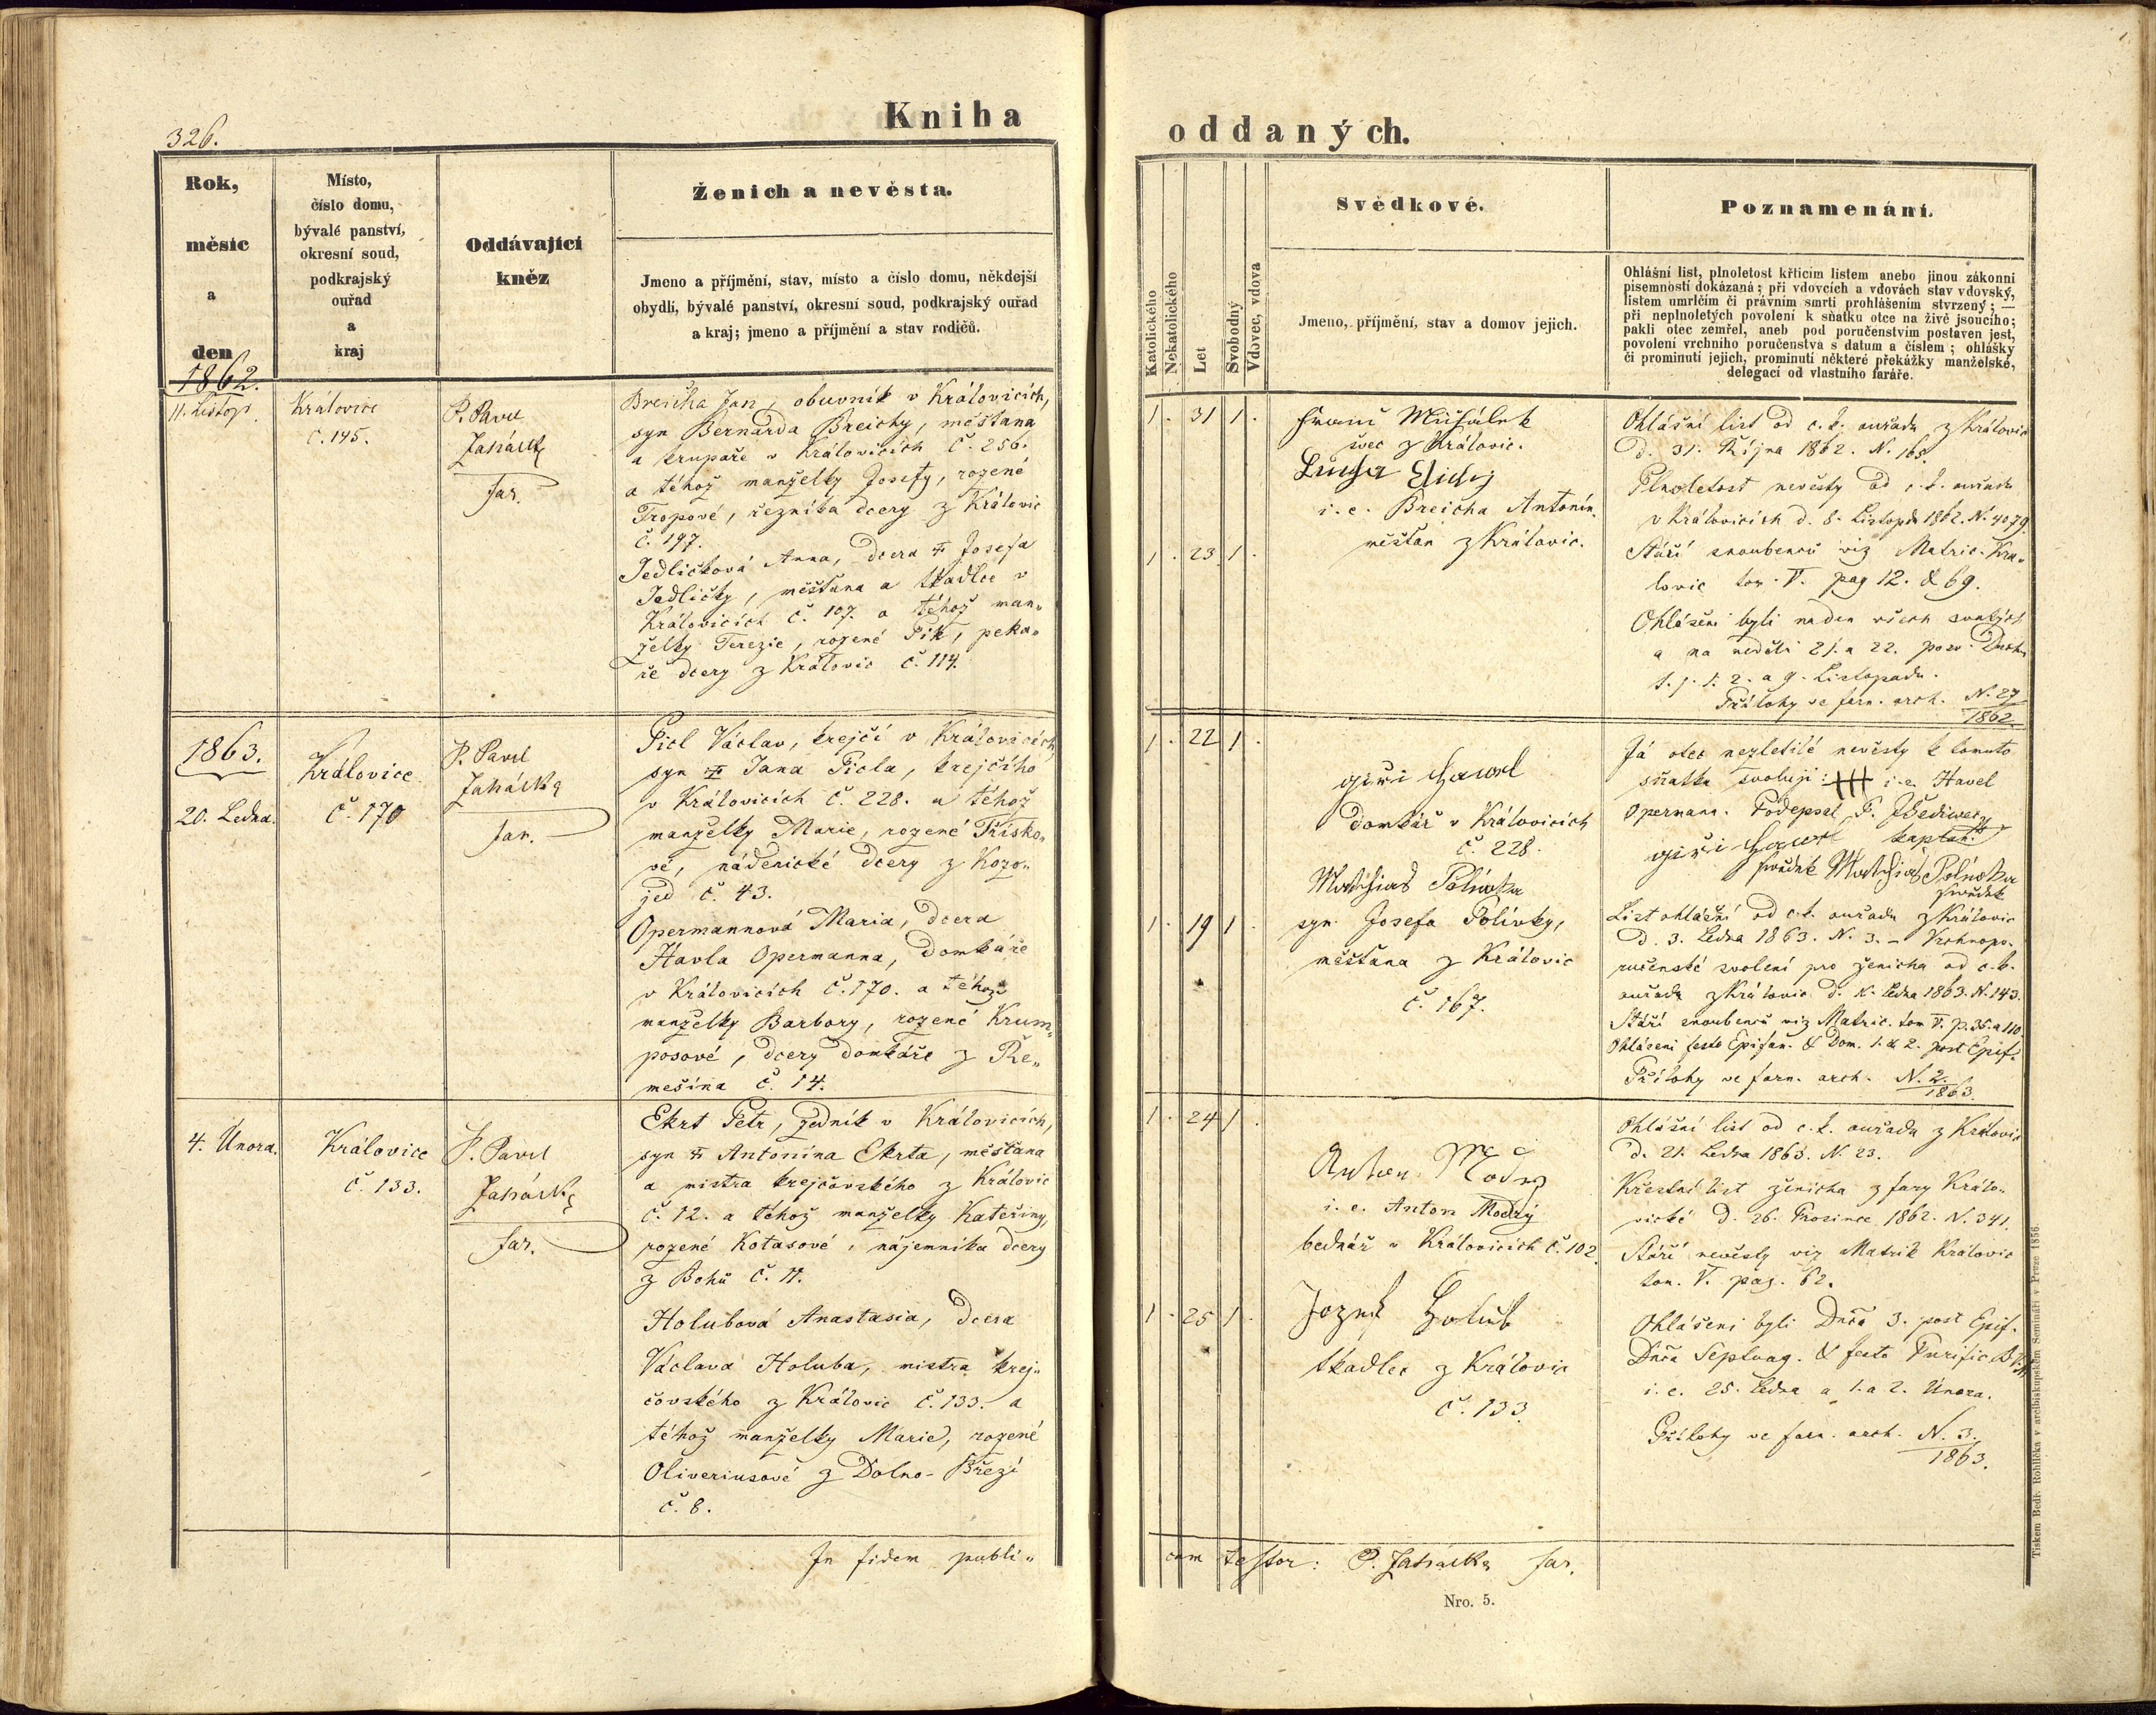 Kniha
326.
Rok,
měsíc
a
den
Místo,
číslo domu,
bývalé panství,
okresní soud,
podkrajský
ouřad
a
kraj
Oddávající
kněz
Ženich a nevěsta.
Jmeno a příjmění, stav, místo a číslo domu, někdejší
obydlí, bývalé panství, okresní soud, podkrajský ouřad
a kraj; jmeno a příjmění a stav rodičů.
1862.
11. Listop.
Královice
č. 145.
P. Pavel
far.
Breicha Jan, obuvník v Královicích,
syn Bernarda Breichy, měšťana
a krupaře v Královicích č. 256.
a téhož manželky Josefy, rozené
Tropové, řezníka dcery z Královic
č. 197.
Jedličková Anna, dcera Josefa
Jedličky, měšťana a tkadlce v
Královicích č. 107. a téhož man„
želky Terezie, rozené Pik, peka„
ře dcery z Královic č. 114.
1863.
20. Ledna.
Královice
č. 170
P. Pavel
far.
Picl Václav, krejčí v Královicích,
syn Jana Picla, krejčího
v Královicích č. 228. a téhož
manželky Marie, rozené Třísko„
vé, nádenické dcery z Kozo„
jed č. 43.
Opermannová Maria, dcera
Havla Opermanna, domkáře
v Královicích č. 170. a téhož
manželky Barbory, rozené Krum„
posové, dcery domkáře z Ře„
mešína č. 14.
4. Února.
Královice
č. 133.
P. Pavel
far.
Ekrt Petr, zedník v Královicích,
syn Antonína Ekrta, měšťana
a mistra krejčovského z Královic
č. 12. a téhož manželky Kateřiny,
rozené Kotasové, nájemníka dcery
z Bohů č. 11.
Holubová Anastasia, dcera
Václava Holuba, mistra krej„
čovského z Královic č. 133. a
téhož manželky Marie, rozené
Oliveriusové z Dolno-Březí
č. 8.
In fidem publi„
oddaných.
Katolického
Nekatolického
Let
Svobodný
Vdovec, vdova
Svědkové.
Jmeno, příjmění, stav a domov jejich.
Poznamenání.
Ohlášní list, plnoletost křticím listem anebo jinou zákonní
písemností dokázaná; při vdovcích a vdovách stav vdovský,
listem umrlčím či právním smrti prohlášením stvrzený; —
při neplnoletých povolení k sňatku otce na živě jsoucího;
pakli otec zemřel, aneb pod poručenstvím postaven jest,
povolení vrchního poručenstva s datum a číslem; ohlášky
či prominutí jejich, prominutí některé překážky manželské,
delegací od vlastního faráře.
1 . 31 1 .
švec z Královic.
i. e. Breicha Antonín
měšťan z Královic.
1 . 23 1 .
Ohlášní list od c. k. ouřadu z Královic
d. 31. Října 1862. N. 165.
Plnoletost nevěsty od c. k. ouřadu
v Královicích d. 8. Listopdu 1862. N. 4079.
Stáří snoubenců viz Matric. Kra„
lovic tom. V. pag 12. & 69.
Ohlášeni byli na den všech svatých
a na neděli 21. a 22. po sv. Duchu
t. j. 1. 2. a 9. Listopadu.
Přílohy ve farn. arch. N. 27
1862.
1 . 22 1 .
Domkář v Královicích
č. 228.
Mathias Polívka
1 . 19 1 .
syn Josefa Polívky,
měšťana z Královic
č. 167.
Já otec nezletilé nevěsty k tomuto
sňatku svoluji: +++ i. e. Havel
Opermann. Podepsal
kaplan.
svědek Mathias Polívka
svědek
List ohlášní od c. k. ouřadu z Královic
d. 3. Ledna 1863. N. 3. – Vrchnopo„
ručenské svolení pro ženicha od c. k.
ouřadu z Královic Ledna 1863. N. 143.
Stáří snoubenců viz Matric. tom V. p. 35. a 110
Ohlášeni festo Epifan. & Dom. 1. & 2. post Epif.
Přílohy ve farn. arch. N. 2.
1863.
1 . 24 1 .
Anton Modry
i. e. Anton Modrý
bednář v Královicích č. 102.
1 . 25 1 .
Jozef Holub
tkadlec z Královic
č. 133.
Ohlášní list od c. k. ouřadu z Královic
d. 21. Ledna 1863. N. 23.
Křestní list ženicha z fary Králo„
vické d. 26. Prosince 1862. N. 341.
Stáří nevěsty viz Matrik Královic
tom. V. pag. 62.
Ohlášeni byli Dnca 3. post Epif.
Dnca Septuag. & festo Purific. B. V. M.
i. e. 25. Ledna a 1. a 2. Února.
Přílohy ve farn. arch. N. 3.
1863.
cam testor: P. far.
Nro. 5.
Tiskem Bedř. Rohlíčka v arcibiskupském Semináři v Praze 1856.